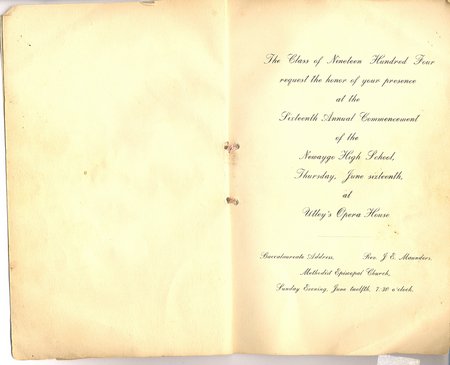 The Class of Nineteen Hundred Four
request the honor of your presence
at the
Sixteenth Annual Commencement
of the
Newaygo High School,
Thursday, June sixteenth,
at
Utley's Opera House
Baccalaureate Address, Rev. J. E. Maunders.
Methodist Episcopal Church,
Sunday Evening, June twelfth, 7:30 o'clock.